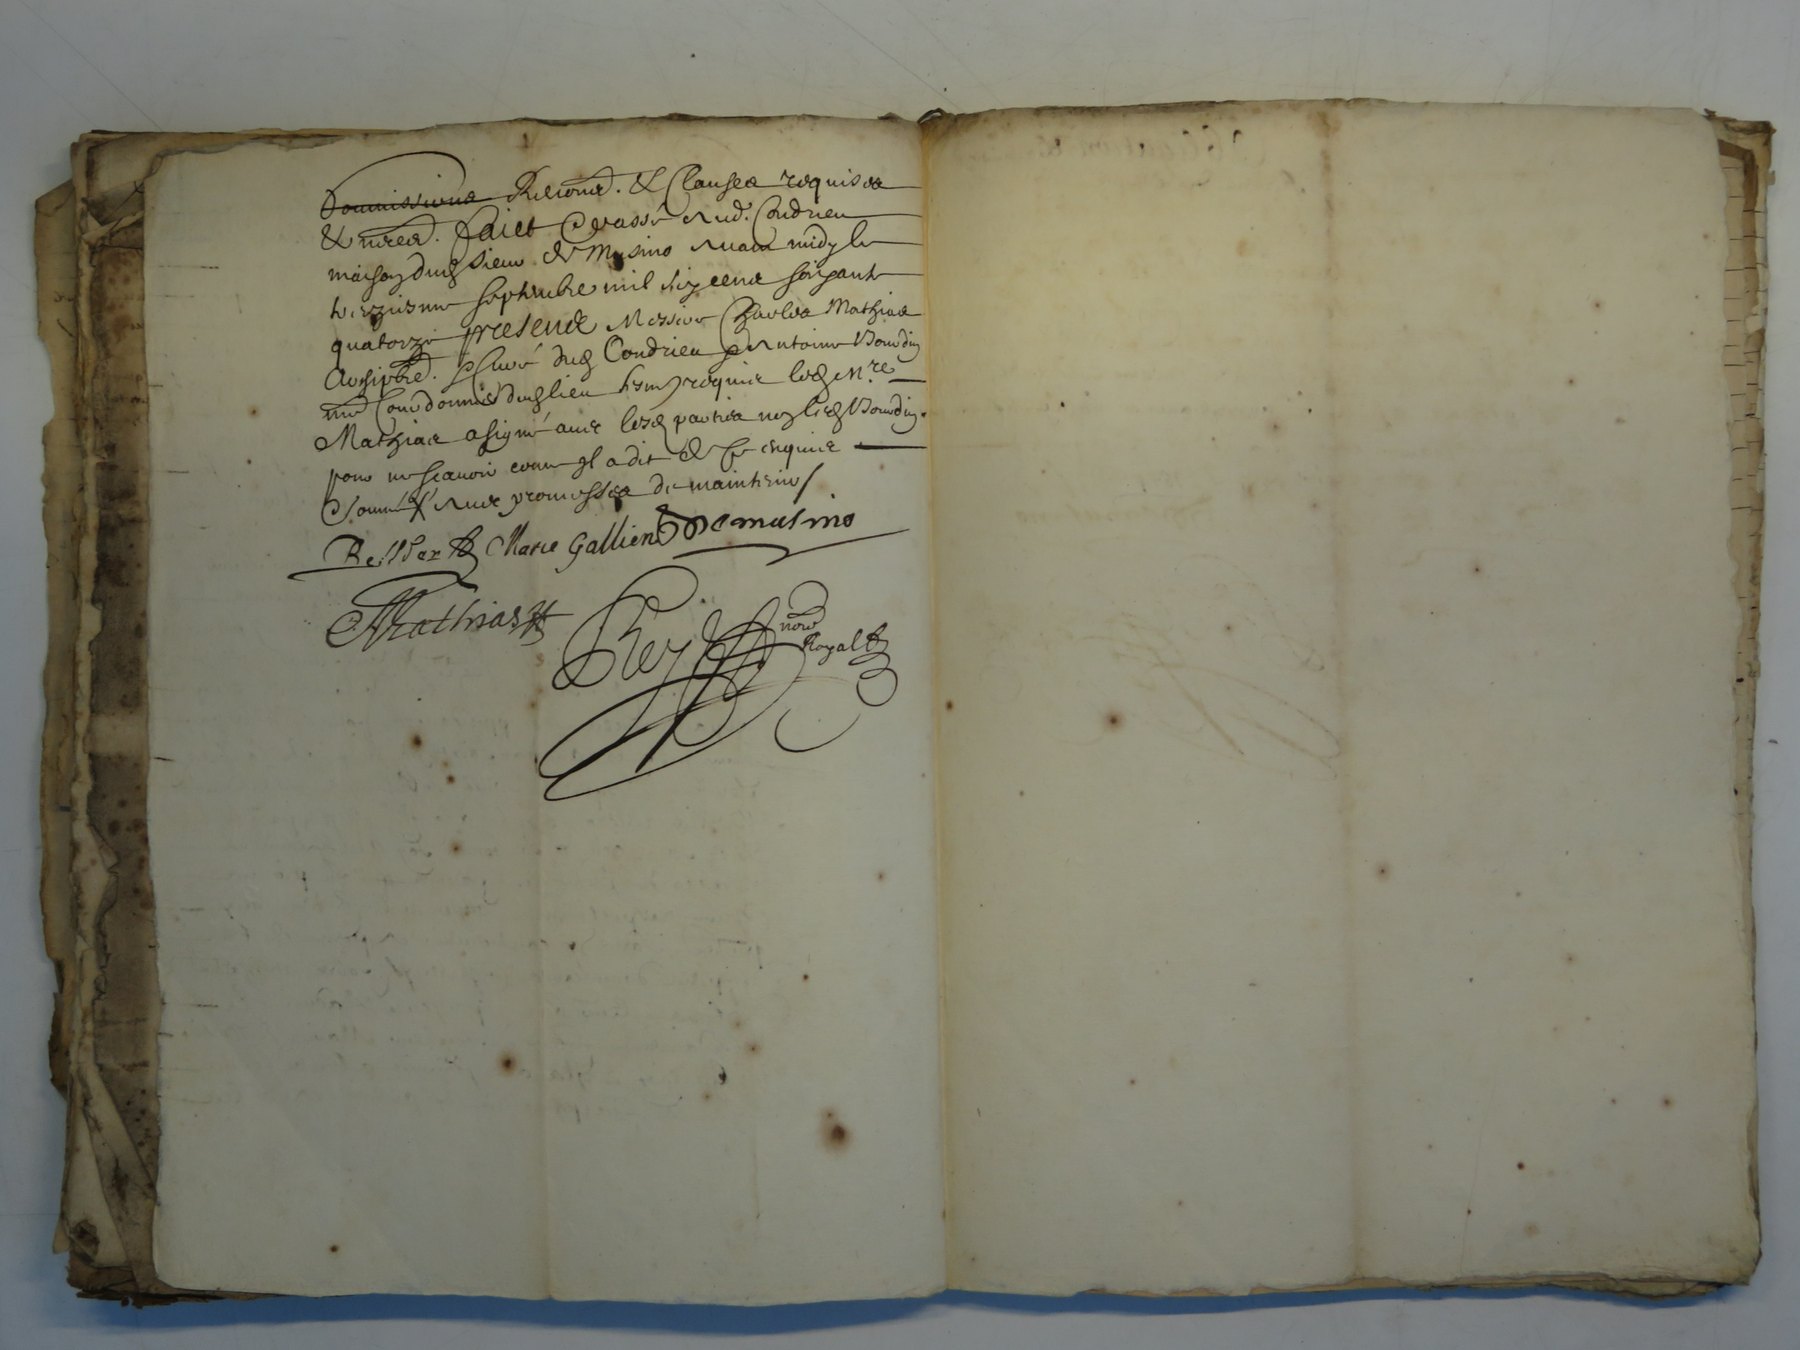 Soumissions Renonc. & Clauses requises
& necess. faict & passé aud. Condrieu
maison dud sieur de Musino avant midy le
treziesme septembre mil six cens soixante
quatorze presens Messire Charles Mathias
curé dud Condrieu & Antoine Bourdin
me Courdonnier dud lieu tesm requis led Mre
Mathias a signé avec lesd parties non led Bourdin
pour ne scavoir comme Il a dit de ce enquis
avec promesses de maintenir
Marie Gallien Demusino
Mathias
Rey nore
Royal